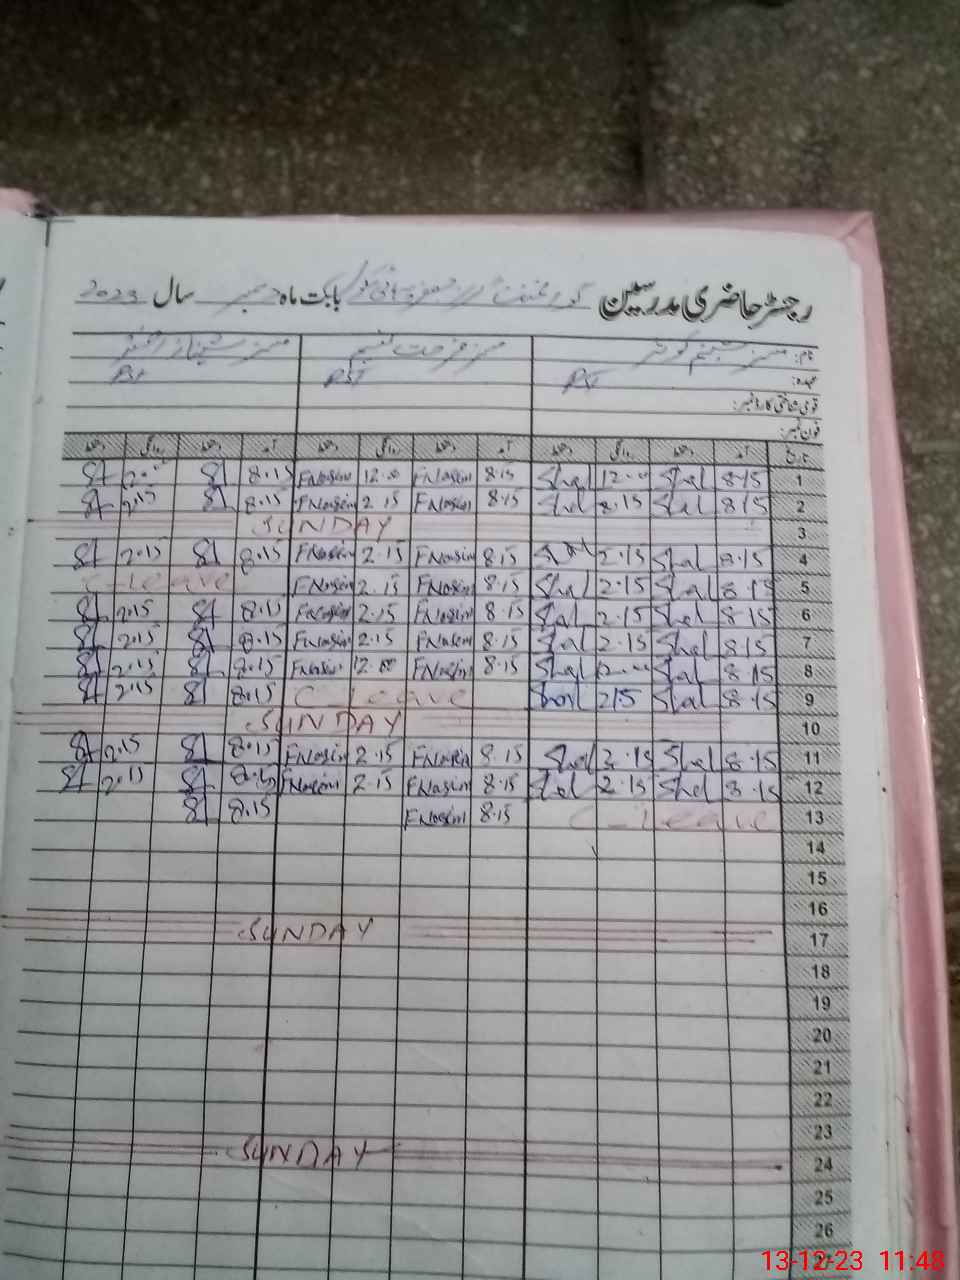 رجسٹر حاضری مدرسین گورنمنٹ بابت ماہ دسمبر سال 2023
نام: مسز شبنم کوثر مسز فرحت نسیم مسز شہناز اختر
عہدہ: PST PST PST
قومی شناختی کارڈ نمبر:
فون نمبر:
تاریخ آمد دستخط روانگی دستخط آمد دستخط روانگی دستخط آمد دستخط روانگی دستخط
1 8.15 Shal 12.00 Shal 8.15 FNasim 12.00 FNasim 8.15
2 8.15 Shal 8.15 Shal 8.15 FNasim 2.15 FNasim 8.15 2.15
3 SUNDAY
4 8.15 Shal 2.15 8.15 FNasim 2.15 FNasim 8.15 2.15
5 8.15 Shal 2.15 Shal 8.15 FNasim 2.15 FNasim C-leave
6 8.15 Shal 2.15 Shal 8.15 FNasim 2.15 FNasim 8.15 2.15
7 8.15 Shal 2.15 Shal 8.15 FNasim 2.15 FNasim 8.15 2.15
8 8.15 Shal 12.00 Shal 8.15 FNasim 12.00 FNasim 8.15 2.15
9 8.15 Shal 215 Shal C leave 8.15 2.15
10 SUNDAY
11 8.15 Shal 2.15 Shal 8.15 FNasim 2.15 FNasim 8.15 2.15
12 8.15 Shal 2.15 Shal 8.15 FNasim 2.15 FNasim 8.15 2.15
13 C-leave 8.15 FNasim 8.15
14
15
16
17 SUNDAY
18
19
20
21
22
23
24 SUNDAY
25
26
13-12-23 11:48